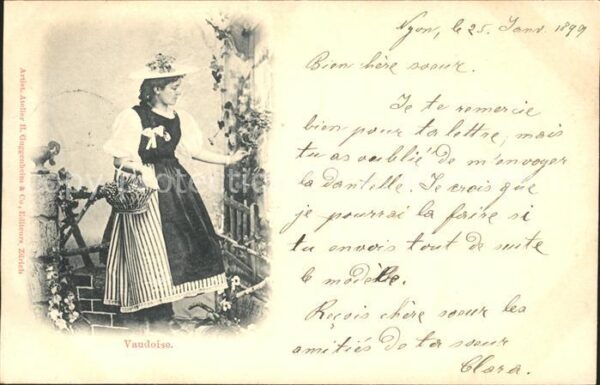 Nyon, le 25. Janv. 1899
Bien chère soeur.
Je te remercie
bien pour ta lettre, mais
tu as oublié de m'envoyer
la dantelle. Je crois que
je pourrai la faire si
tu envois tout de suite
le modèlle.
Reçois chère soeur les
amitiés de ta soeur
Clara.
Vaudoise.
Artist. Atelier H. Guggenheim & Co., Editeurs, Zürich